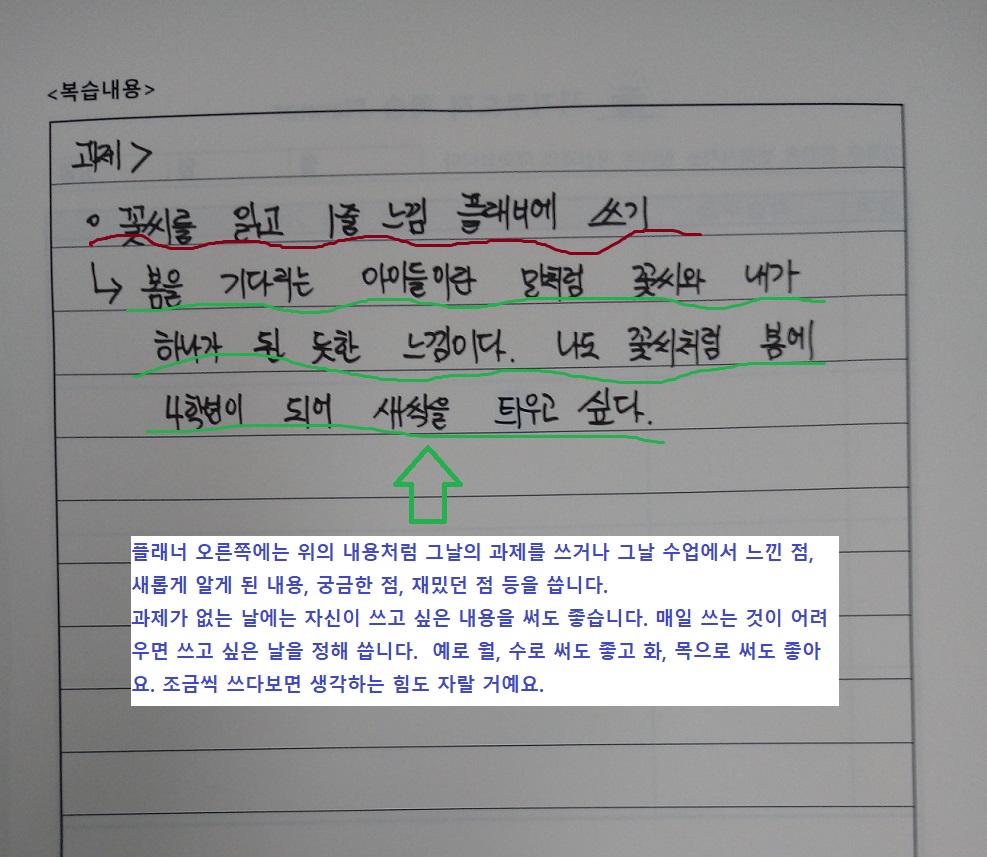 <복습내용>
과제>
o 꽃씨를 읽고 1줄 느낌 플래너에 쓰기
↳ 봄을 기다리는 아이들이란 말처럼 꽃씨와 내가
하나가 된 듯한 느낌이다. 나도 꽃씨처럼 봄에
4학년이 되어 새싹을 틔우고 싶다.
플래너 오른쪽에는 위의 내용처럼 그날의 과제를 쓰거나 그날 수업에서 느낀 점,
새롭게 알게 된 내용, 궁금한 점, 재밌던 점 등을 씁니다.
과제가 없는 날에는 자신이 쓰고 싶은 내용을 써도 좋습니다. 매일 쓰는 것이 어려
우면 쓰고 싶은 날을 정해 씁니다.  예로 월, 수로 써도 좋고 화, 목으로 써도 좋아
요. 조금씩 쓰다보면 생각하는 힘도 자랄 거예요.